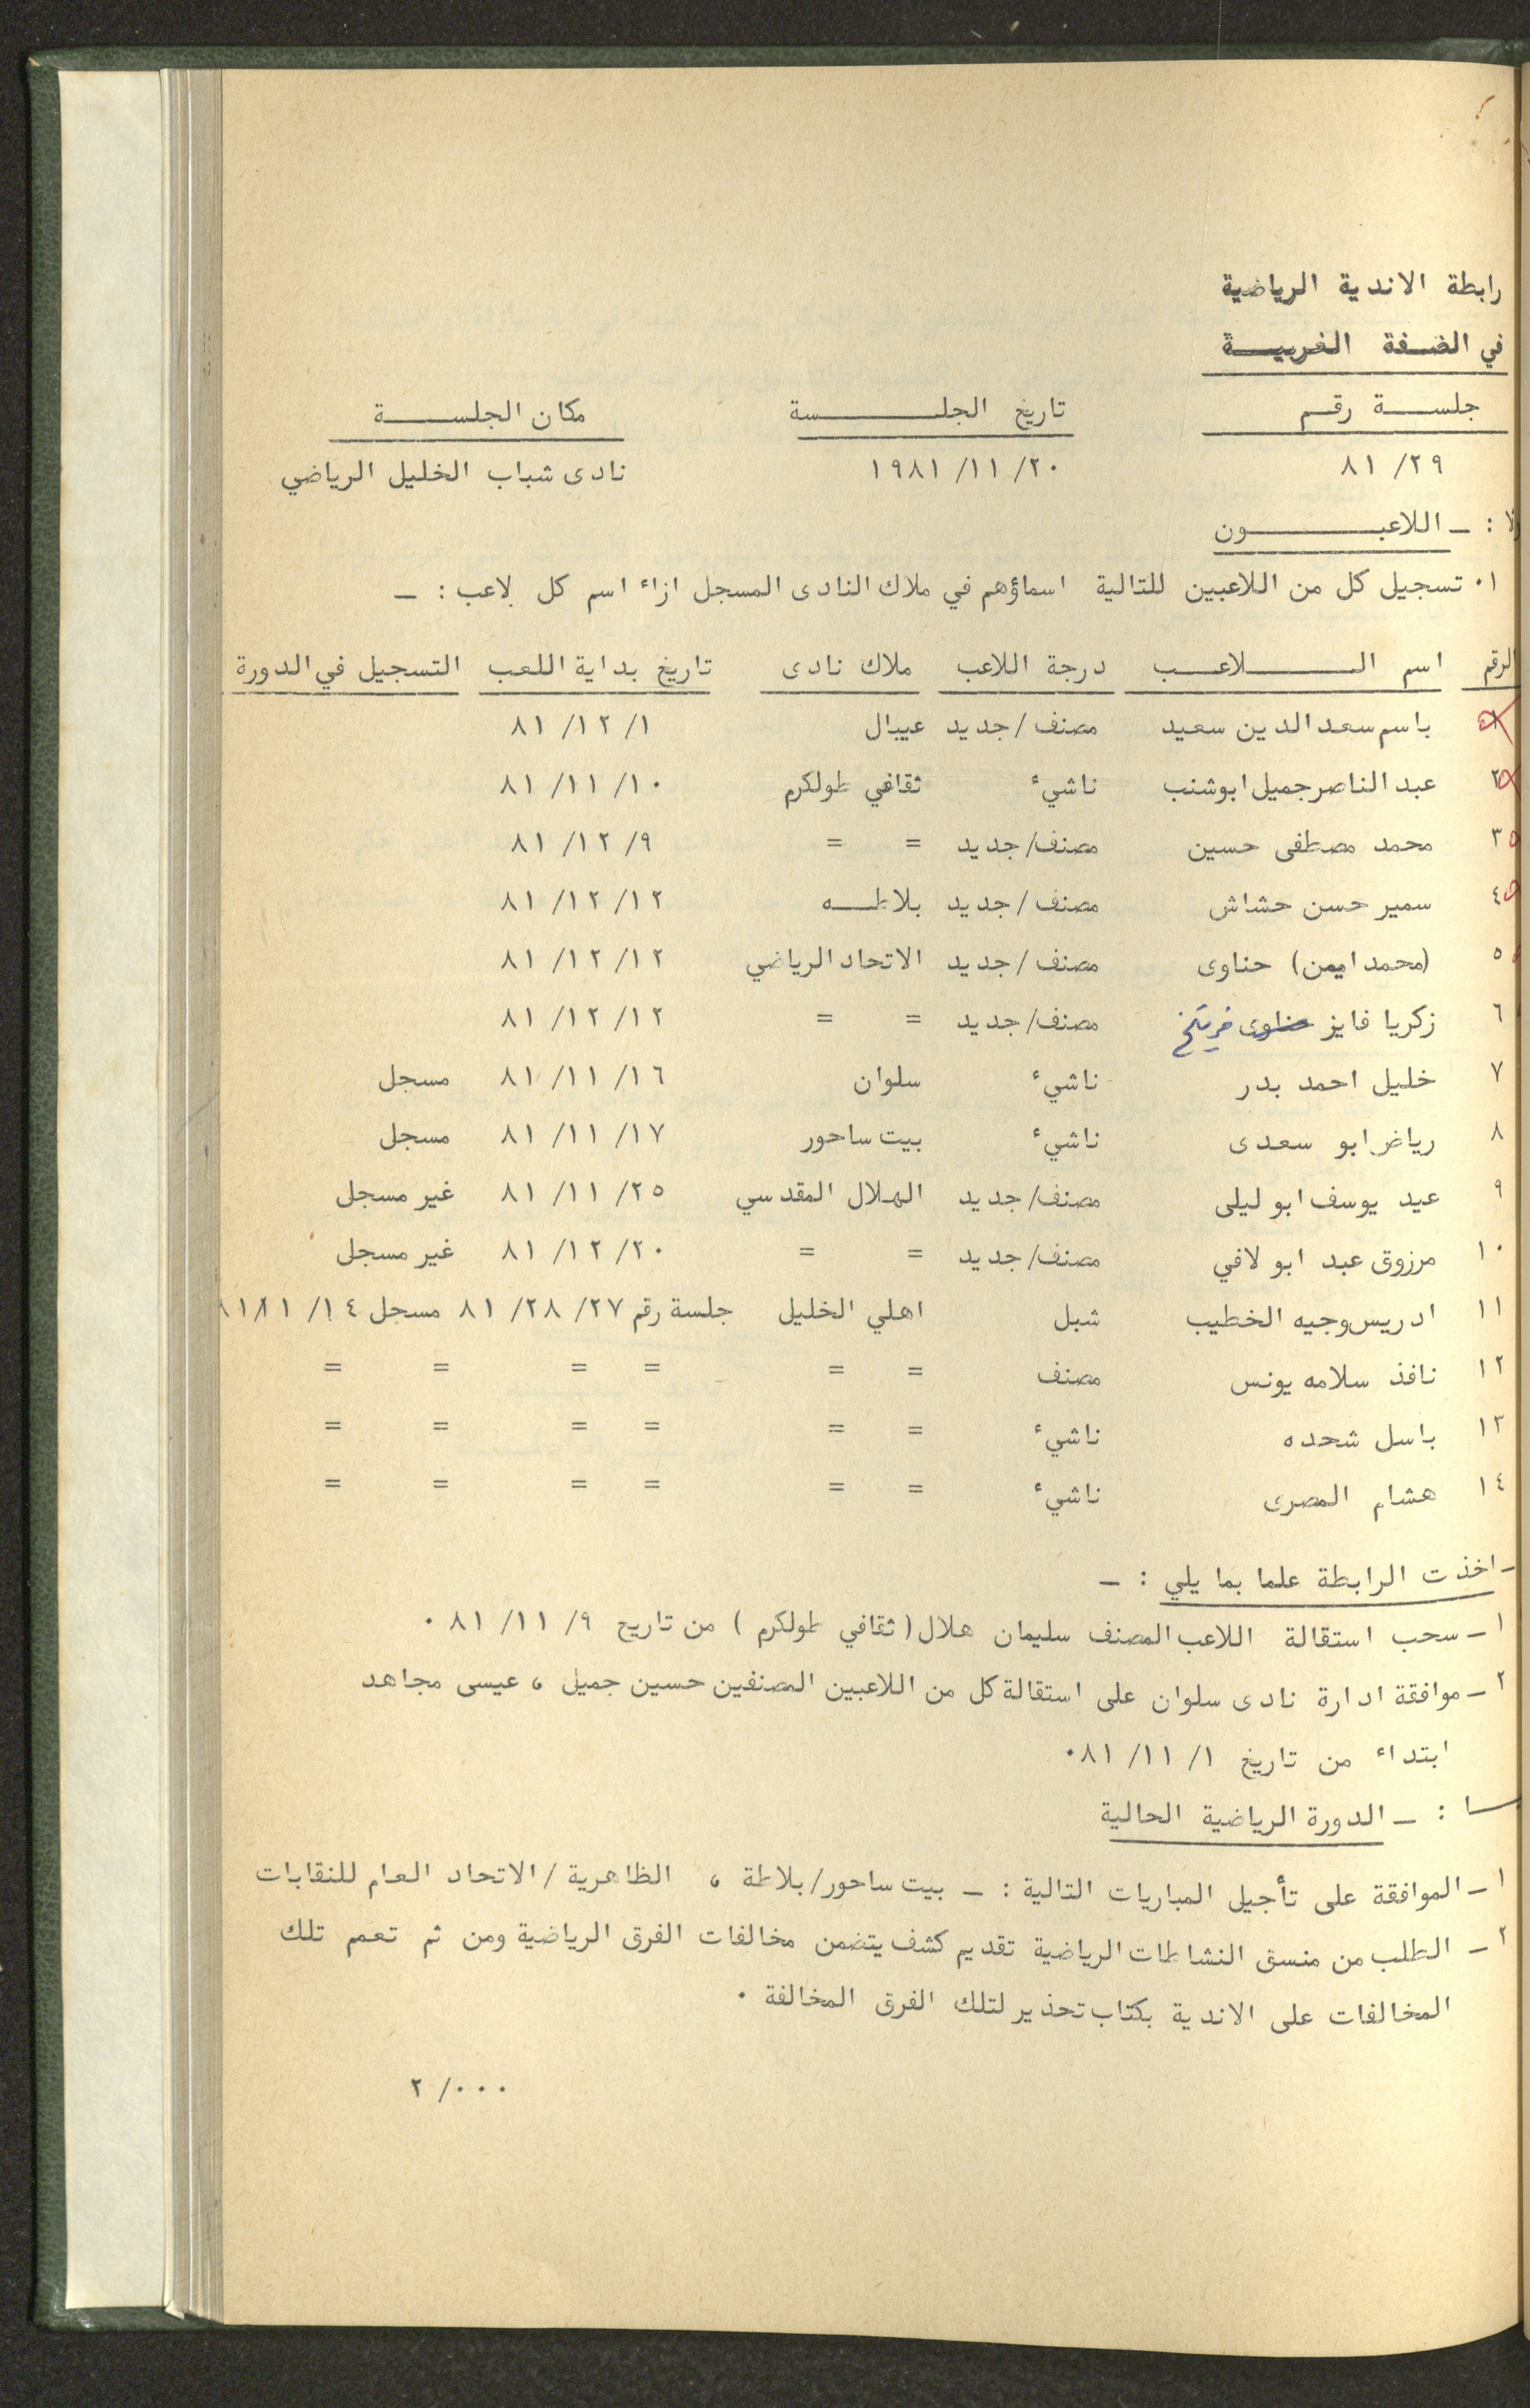 رابطة الاندية الرياضية
في الضفة الغربية
جلسة رقم تاريخ الجلسة مكان الجلسة
٨١/٢٩ ١٩٨١/١١/٢٠ نادى شباب الخليل الرياضي
لا : ـ اللاعبون
٠١ تسجيل كل من اللاعبين للتالية اسماؤهم في ملاك النادى المسجل ازاء اسم كل لاعب : ـ
الرقم اسم اللاعب درجة اللاعب ملاك نادى تاريخ بداية اللعب التسجيل في الدورة
١ باسم سعد الدين سعيد مصنف/جديد عيبال ٨١/١٢/١
٢ عبد الناصر جميل ابوشنب ناشيء ثقافي طولكرم ٨١/١١/١٠
٣ محمد مصطفى حسين مصنف/جديد = = ٨١/١٢/٩
٤ سمير حسن حشاش مصنف/جديد بلاطه ٨١/١٢/١٢
٥ (محمد ايمن) حناوى مصنف/جديد الاتحاد الرياضي ٨١/١٢/١٢
٦ زكريا فايز حناوى مصنف/جديد = = ٨١/١٢/١٢
٧ خليل احمد بدر ناشيء سلوان ٨١/١١/١٦ مسجل
٨ رياض ابو سعدى ناشيء بيت ساحور ٨١/١١/١٧ مسجل
٩ عيد يوسف ابو ليلى مصنف/جديد الهلال المقدسي ٨١/١١/٢٥ غير مسجل
١٠ مرزوق عبد ابو لافي مصنف/جديد = = ٨١/١٢/٢٠ غير مسجل
١١ ادريس وجيه الخطيب شبل اهلي الخليل جلسة رقم ٨١/٢٨/٢٧ مسجل ٨١/١١/١٤
١٢ نافذ سلامه يونس مصنف = = = = = =
١٣ باسل شحده ناشيء = = = = = =
١٤ هشام المصرى ناشيء = = = = = =
ـ اخذت الرابطة علما بما يلي : ـ
١ـ سحب استقالة اللاعب المصنف سليمان هلال (ثقافي طولكرم ) من تاريخ ٨١/١١/٩ ٠
٢ـ موافقة ادارة نادى سلوان على استقالة كل من اللاعبين المصنفين حسين جميل ، عيسى مجاهد
ابتداء من تاريخ ٨١/١١/١ ٠
سا : ـ الدورة الرياضية الحالية
١ـ الموافقة على تأجيل المباريات التالية : ـ بيت ساحور/بلاطة ، الظاهرية/الاتحاد العام للنقابات
٢ـ الطلب من منسق النشاطات الرياضية تقديم كشف يتضمن مخالفات الفرق الرياضية ومن ثم تعمم تلك
المخالفات على الاندية بكتاب تحذير لتلك الفرق المخالفة ٠
٢/٠٠٠